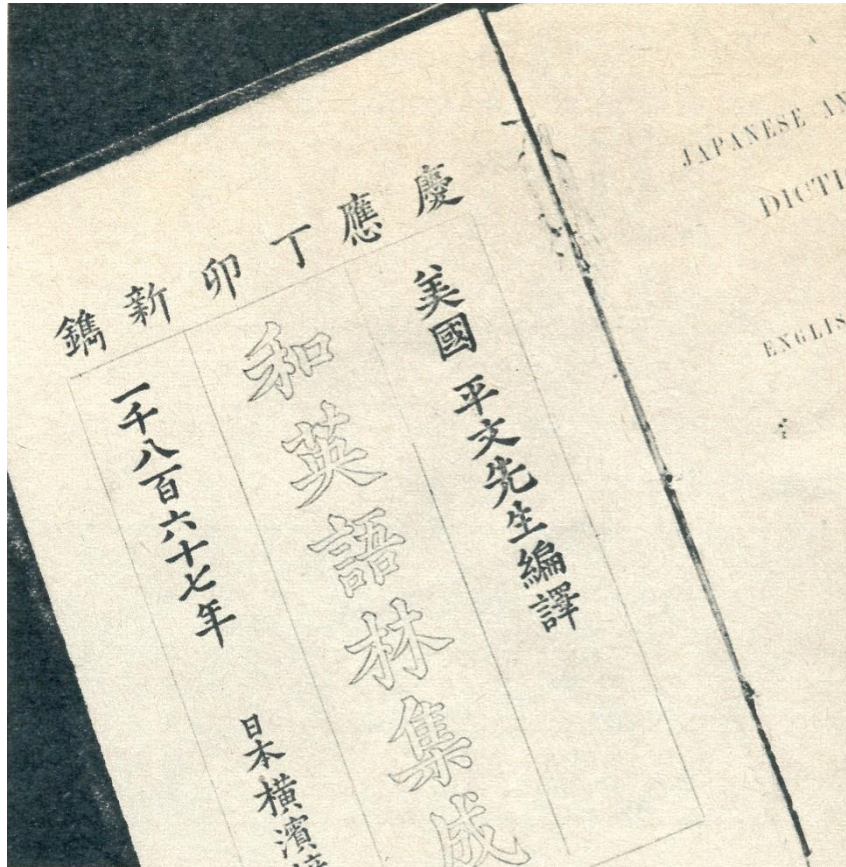 慶應丁卯新鐫
美國 平文先生編譯
和英語林集成
一千八百六十七年
日本橫濱
JAPANESE AN
DICTI
ENGLIS